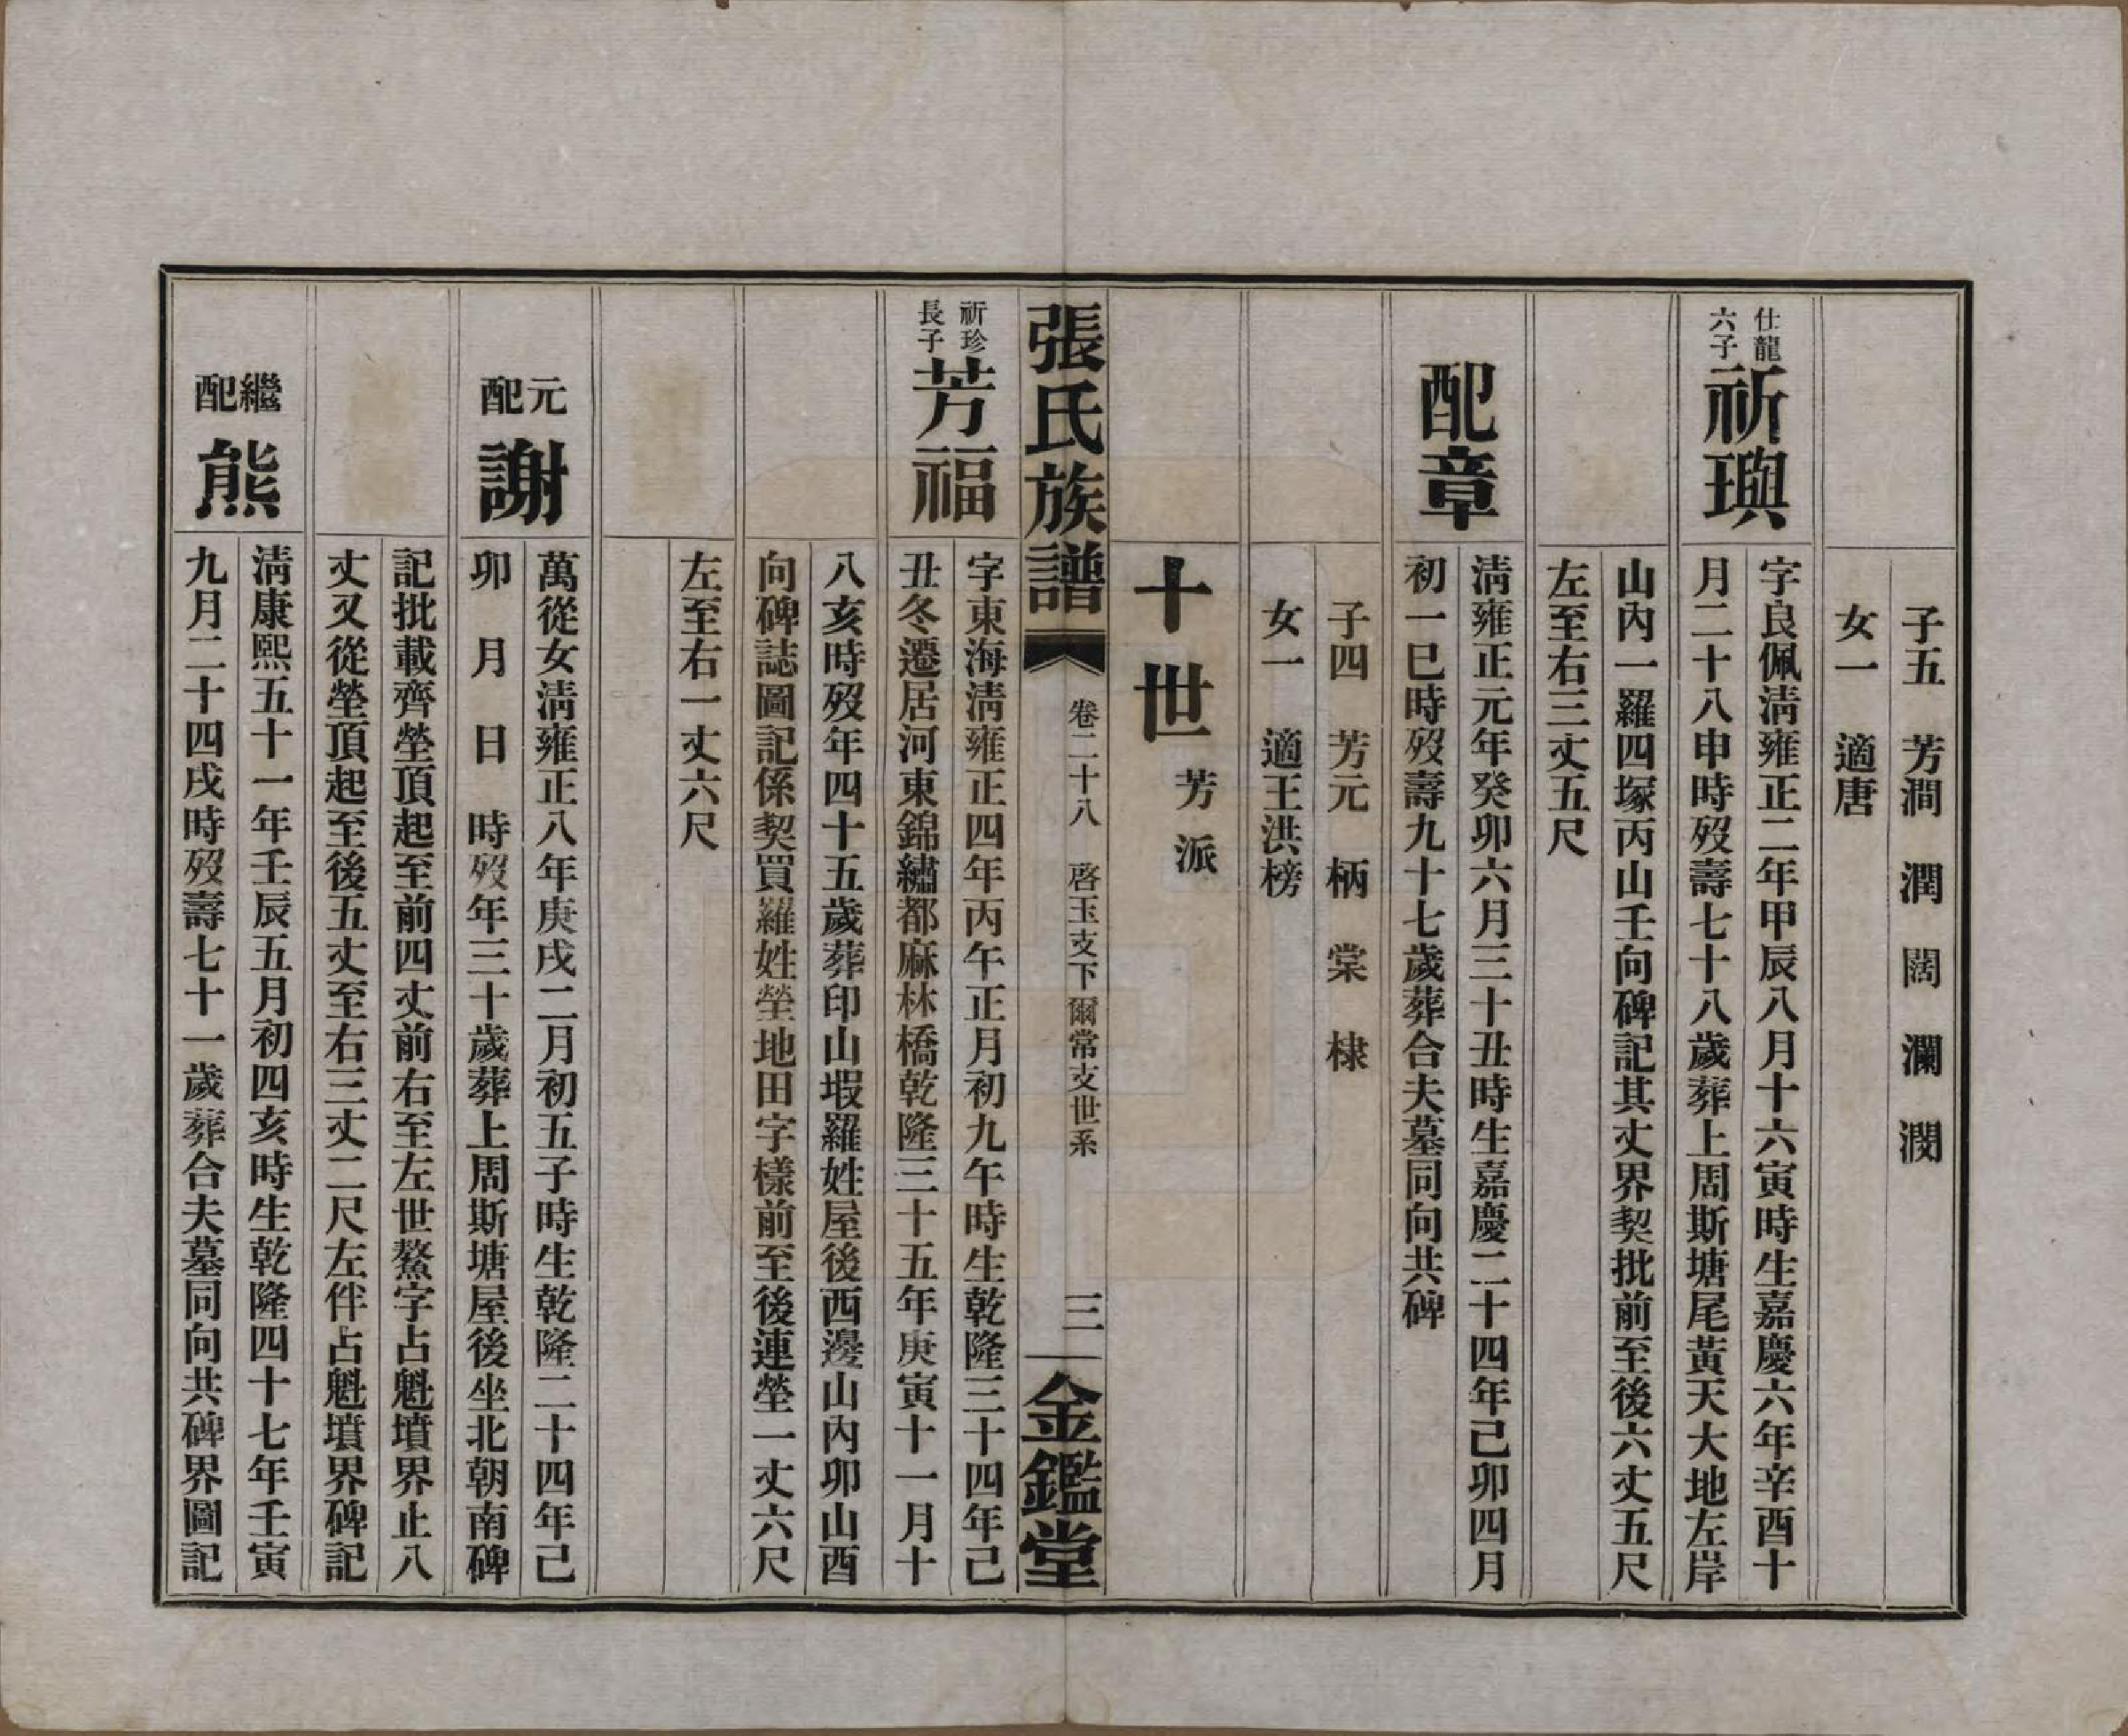 子五　芳澗　潤　闊　瀾　濶
女一　適唐
仕龍
六子
祈璵
字良佩清雍正二年甲辰八月十六寅時生嘉慶六年辛酉十
月二十八申時歿壽七十八歲葬上周斯塘尾黃天大地左岸
山內一羅四塚丙山壬向碑記其丈界契批前至後六丈五尺
左至右三丈五尺
配章
清雍正元年癸卯六月三十丑時生嘉慶二十四年己卯四月
初一巳時歿壽九十七歲葬合夫墓同向共碑
子四　芳元　柄　棠　棣
女一　適王洪榜
十世　芳派
張氏族譜　卷二十八　啓玉支下爾常支世系　三　金鑑堂
祈珍
長子
芳福
字東海清雍正四年丙午正月初九午時生乾隆三十四年己
丑冬遷居河東錦繡都麻林橋乾隆三十五年庚寅十一月十
八亥時歿年四十五歲葬印山塅羅姓屋後西邊山內卯山酉
向碑誌圖記係契買羅姓塋地田字樣前至後連塋一丈六尺
左至右一丈六尺
元配
謝
萬從女清雍正八年庚戌二月初五子時生乾隆二十四年己
卯　月　日　時歿年三十歲葬上周斯塘屋後坐北朝南碑
記批載齊塋頂起至前四丈前右至左世鰲字占魁墳界止八
丈又從塋頂起至後五丈至右三丈二尺左伴占魁墳界碑記
繼配
熊
清康熙五十一年壬辰五月初四亥時生乾隆四十七年壬寅
九月二十四戌時歿壽七十一歲葬合夫墓同向共碑界圖記